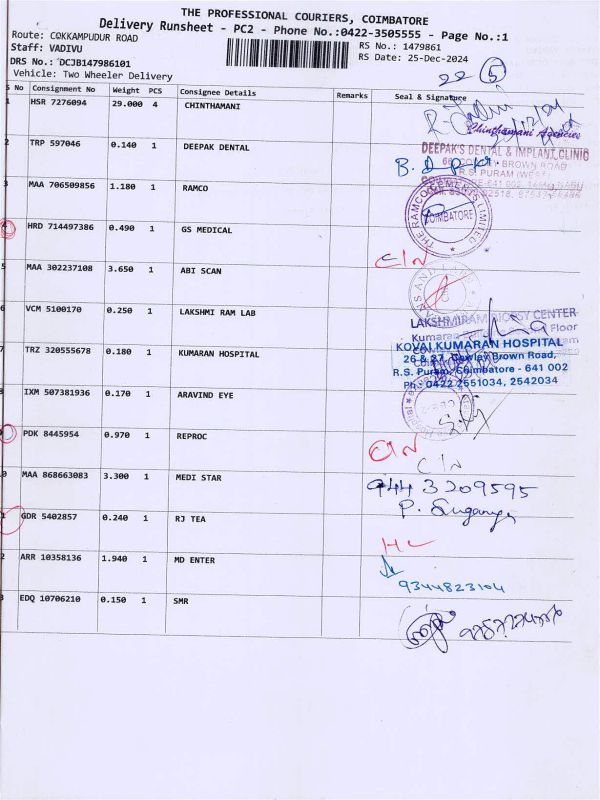 THE PROFESSIONAL COURIERS, COIMBATORE
Delivery Runsheet - PC2 - Phone No.:0422-3505555 - Page No.:1
Route: COKKAMPUDUR ROAD
RS No.: 1479861
Staff: VADIVU
RS Date: 25-Dec-2024
DRS No.: DCJB147986101
Vehicle: Two Wheeler Delivery
22 5
S No Consignment No Weight PCS Consignee Details Remarks Seal & Signature
1 HSR 7276094 29.000 4 CHINTHAMANI
Chinthamani Agencies
2 TRP 597046 0.140 1 DEEPAK DENTAL
DEEPAK'S DENTAL & IMPLANT CLINIC
BROWN ROAD
R.S. PURAM (WEST)
3 MAA 706509856 1.180 1 RAMCO
THE RAMCO CEMENTS LIMITED
COIMBATORE
4 HRD 714497386 0.490 1 GS MEDICAL
C/N
5 MAA 302237108 3.650 1 ABI SCAN
6 VCM 5100170 0.250 1 LAKSHMI RAM LAB
LAKSHMIRAM BIOPSY CENTER
Kumaran Floor
7 TRZ 320555678 0.180 1 KUMARAN HOSPITAL
KOVAI KUMARAN HOSPITAL
26 & 27, Cowley Brown Road,
R.S. Puram, Coimbatore - 641 002
Ph : 0422 2551034, 2542034
8 IXM 507381936 0.170 1 ARAVIND EYE
9 PDK 8445954 0.970 1 REPROC
C/N
C/N
0 MAA 868663083 3.300 1 MEDI STAR
944 3209595
P. Suganya
1 GDR 5402857 0.240 1 RJ TEA
HL
2 ARR 10358136 1.940 1 MD ENTER
9344823104
3 EDQ 10706210 0.150 1 SMR